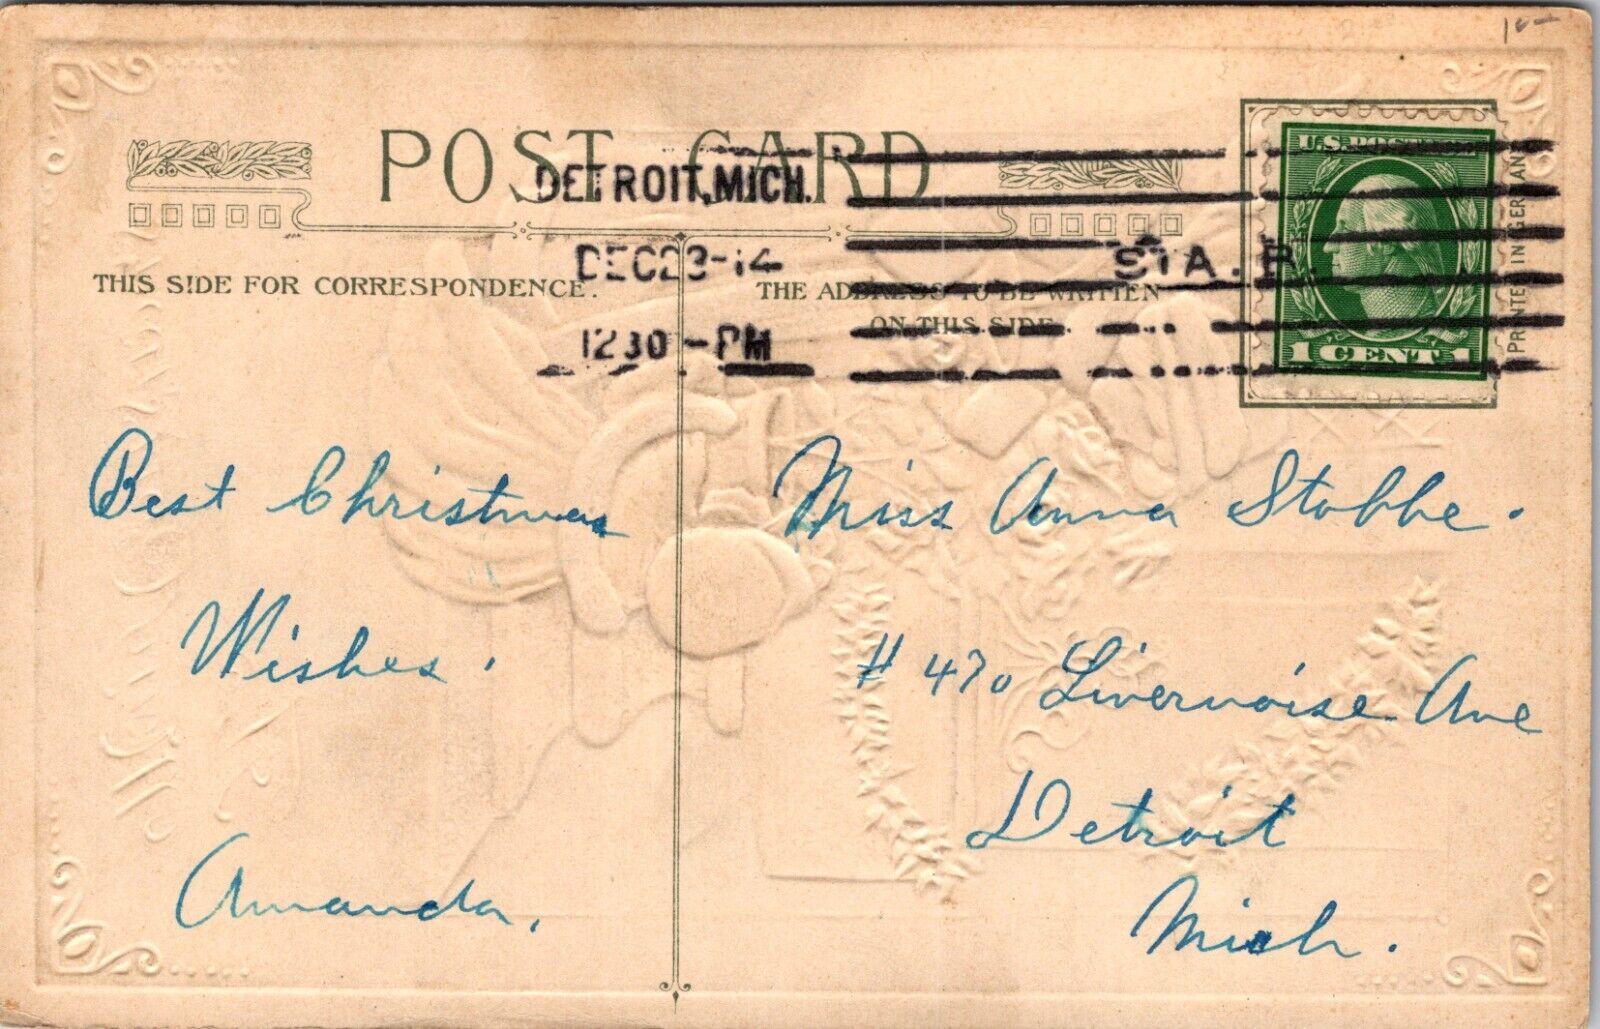 POST CARD
DETROIT, MICH.
DEC 23-14
12 30 - PM
STA. B.
U.S. POSTAGE
1 CENT 1
PRINTED IN GERMANY
THIS SIDE FOR CORRESPONDENCE.
THE ADDRESS TO BE WRITTEN
ON THIS SIDE.
Best Christmas
Wishes.
Amanda.
Miss Anna Stobbe.
# 470 Livernoise Ave
Detroit
Mich.